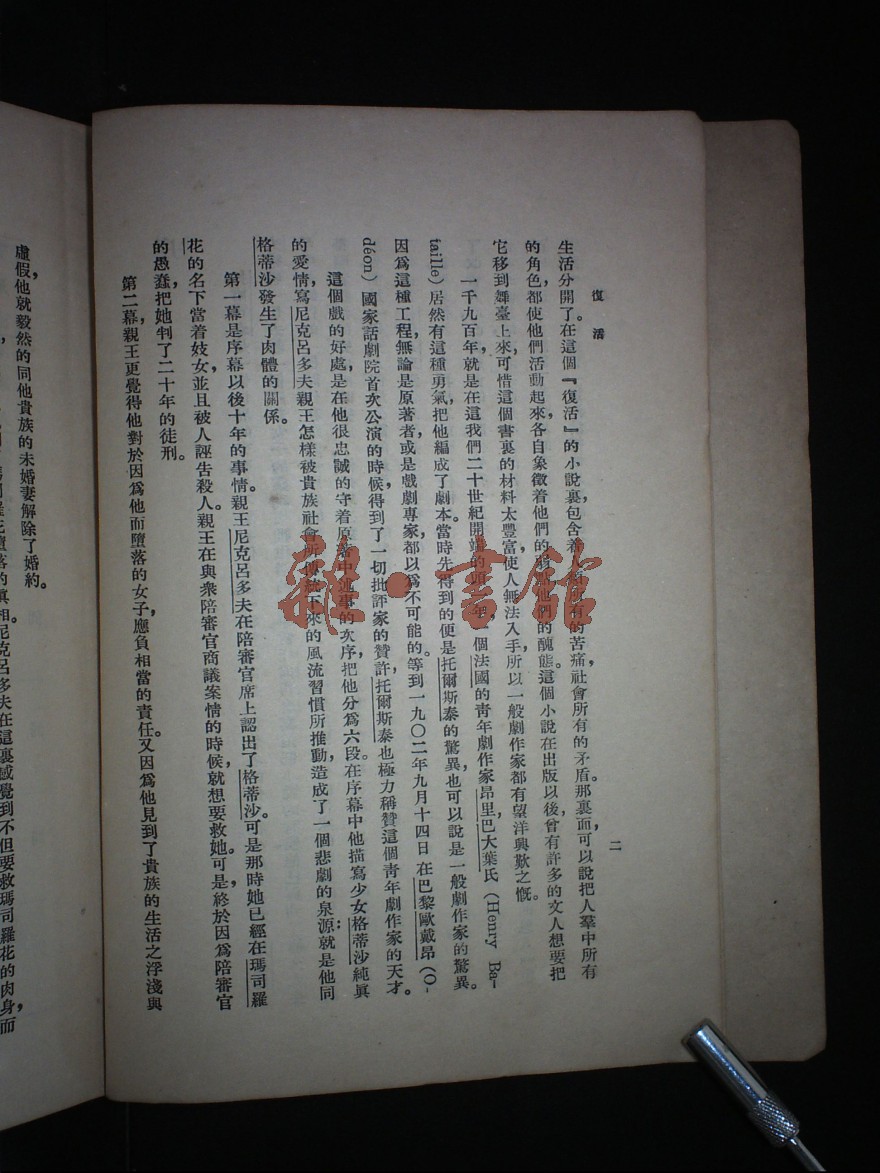 復活
二
生活分開了。在這個『復活』的小說裏，包含着人類所有的苦痛，社會所有的矛盾。那裏面可以說把人羣中所有
的角色，都使他們活動起來，各自象徵着他們的弱點，他們的醜態。這個小說在出版以後，曾有許多的文人想要把
它移到舞臺上來，可惜這個書裏的材料太豐富，使人無法入手，所以一般劇作家都有望洋興歎之慨。
一千九百年，就是在這我們二十世紀開端的頭一年，個法國的青年劇作家昂里巴大葉氏（Henry Ba-
taille）居然有這種勇氣，把他編成了劇本。當時先得到的便是托爾斯泰的驚異，也可以說是一般劇作家的驚異。
因爲這種工程，無論是原著者或是戲劇專家都以爲不可能的。等到一九〇二年九月十四日在巴黎歐戴昂（O-
déon）國家話劇院首次公演的時候，得到了一切批評家的贊許，托爾斯泰也極力稱贊這個青年劇作家的天才。
這個戲的好處是在他很忠誠的守着原著中述事的次序，把他分爲六段。在序幕中他描寫少女格蒂沙純眞
的愛情，寫尼克呂多夫親王怎樣被貴族社會所傳統下來的風流習慣所推動，造成了一個悲劇的泉源：就是他同
格蒂沙發生了肉體的關係。
第一幕是序幕以後十年的事情。親王尼克呂多夫在陪審官席上認出了格蒂沙。可是那時她已經在瑪司羅
花的名下當着妓女，並且被人誣告殺人。親王在與衆陪審官商議案情的時候，就想要救她。可是，終於因爲陪審官
的愚蠢，把她判了二十年的徒刑。
第二幕，親王更覺得他對於因爲他而墮落的女子，應負相當的責任。又因爲他見到了貴族的生活之浮淺與
虛假，他就毅然的同他貴族的未婚妻解除了婚約。
墮落的眞相。尼克呂多夫在這裏感覺到不但要救瑪司羅花的肉身，而
雜·書館